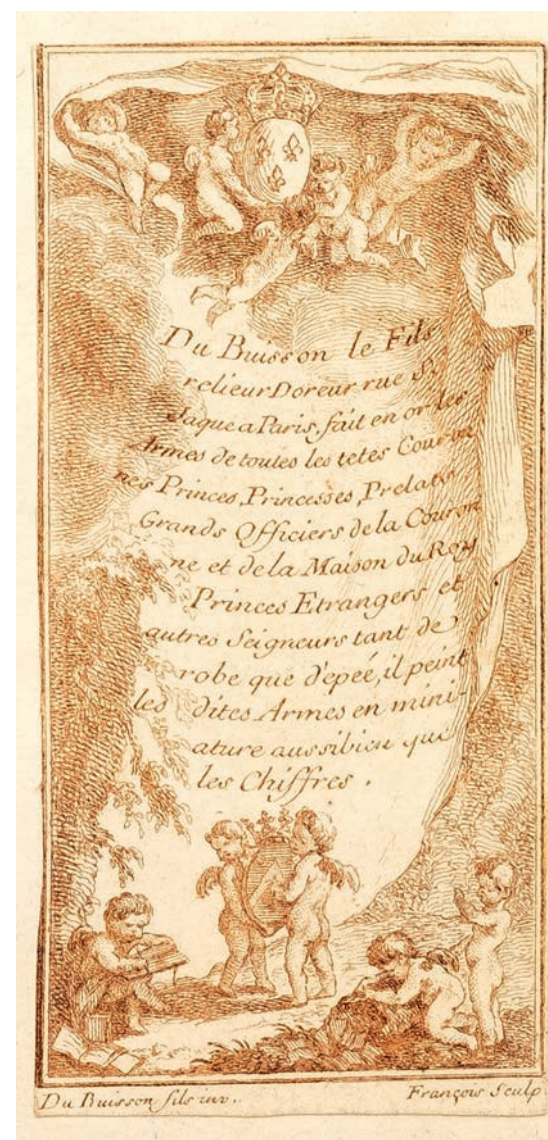 Du Buisson le Fils
relieur Doreur rue S.
Jaque a Paris, fait en or les
Armes de toutes les tetes Couron
nes Princes, Princesses, Prelats
Grands Officiers de la Couron
ne et de la Maison du Roy
Princes Etrangers et
autres Seigneurs tant de
robe que d'epeé, il peint
les dites Armes en mini-
ature aussibien que
les Chiffres.
Du Buisson fils inv..
François Sculp